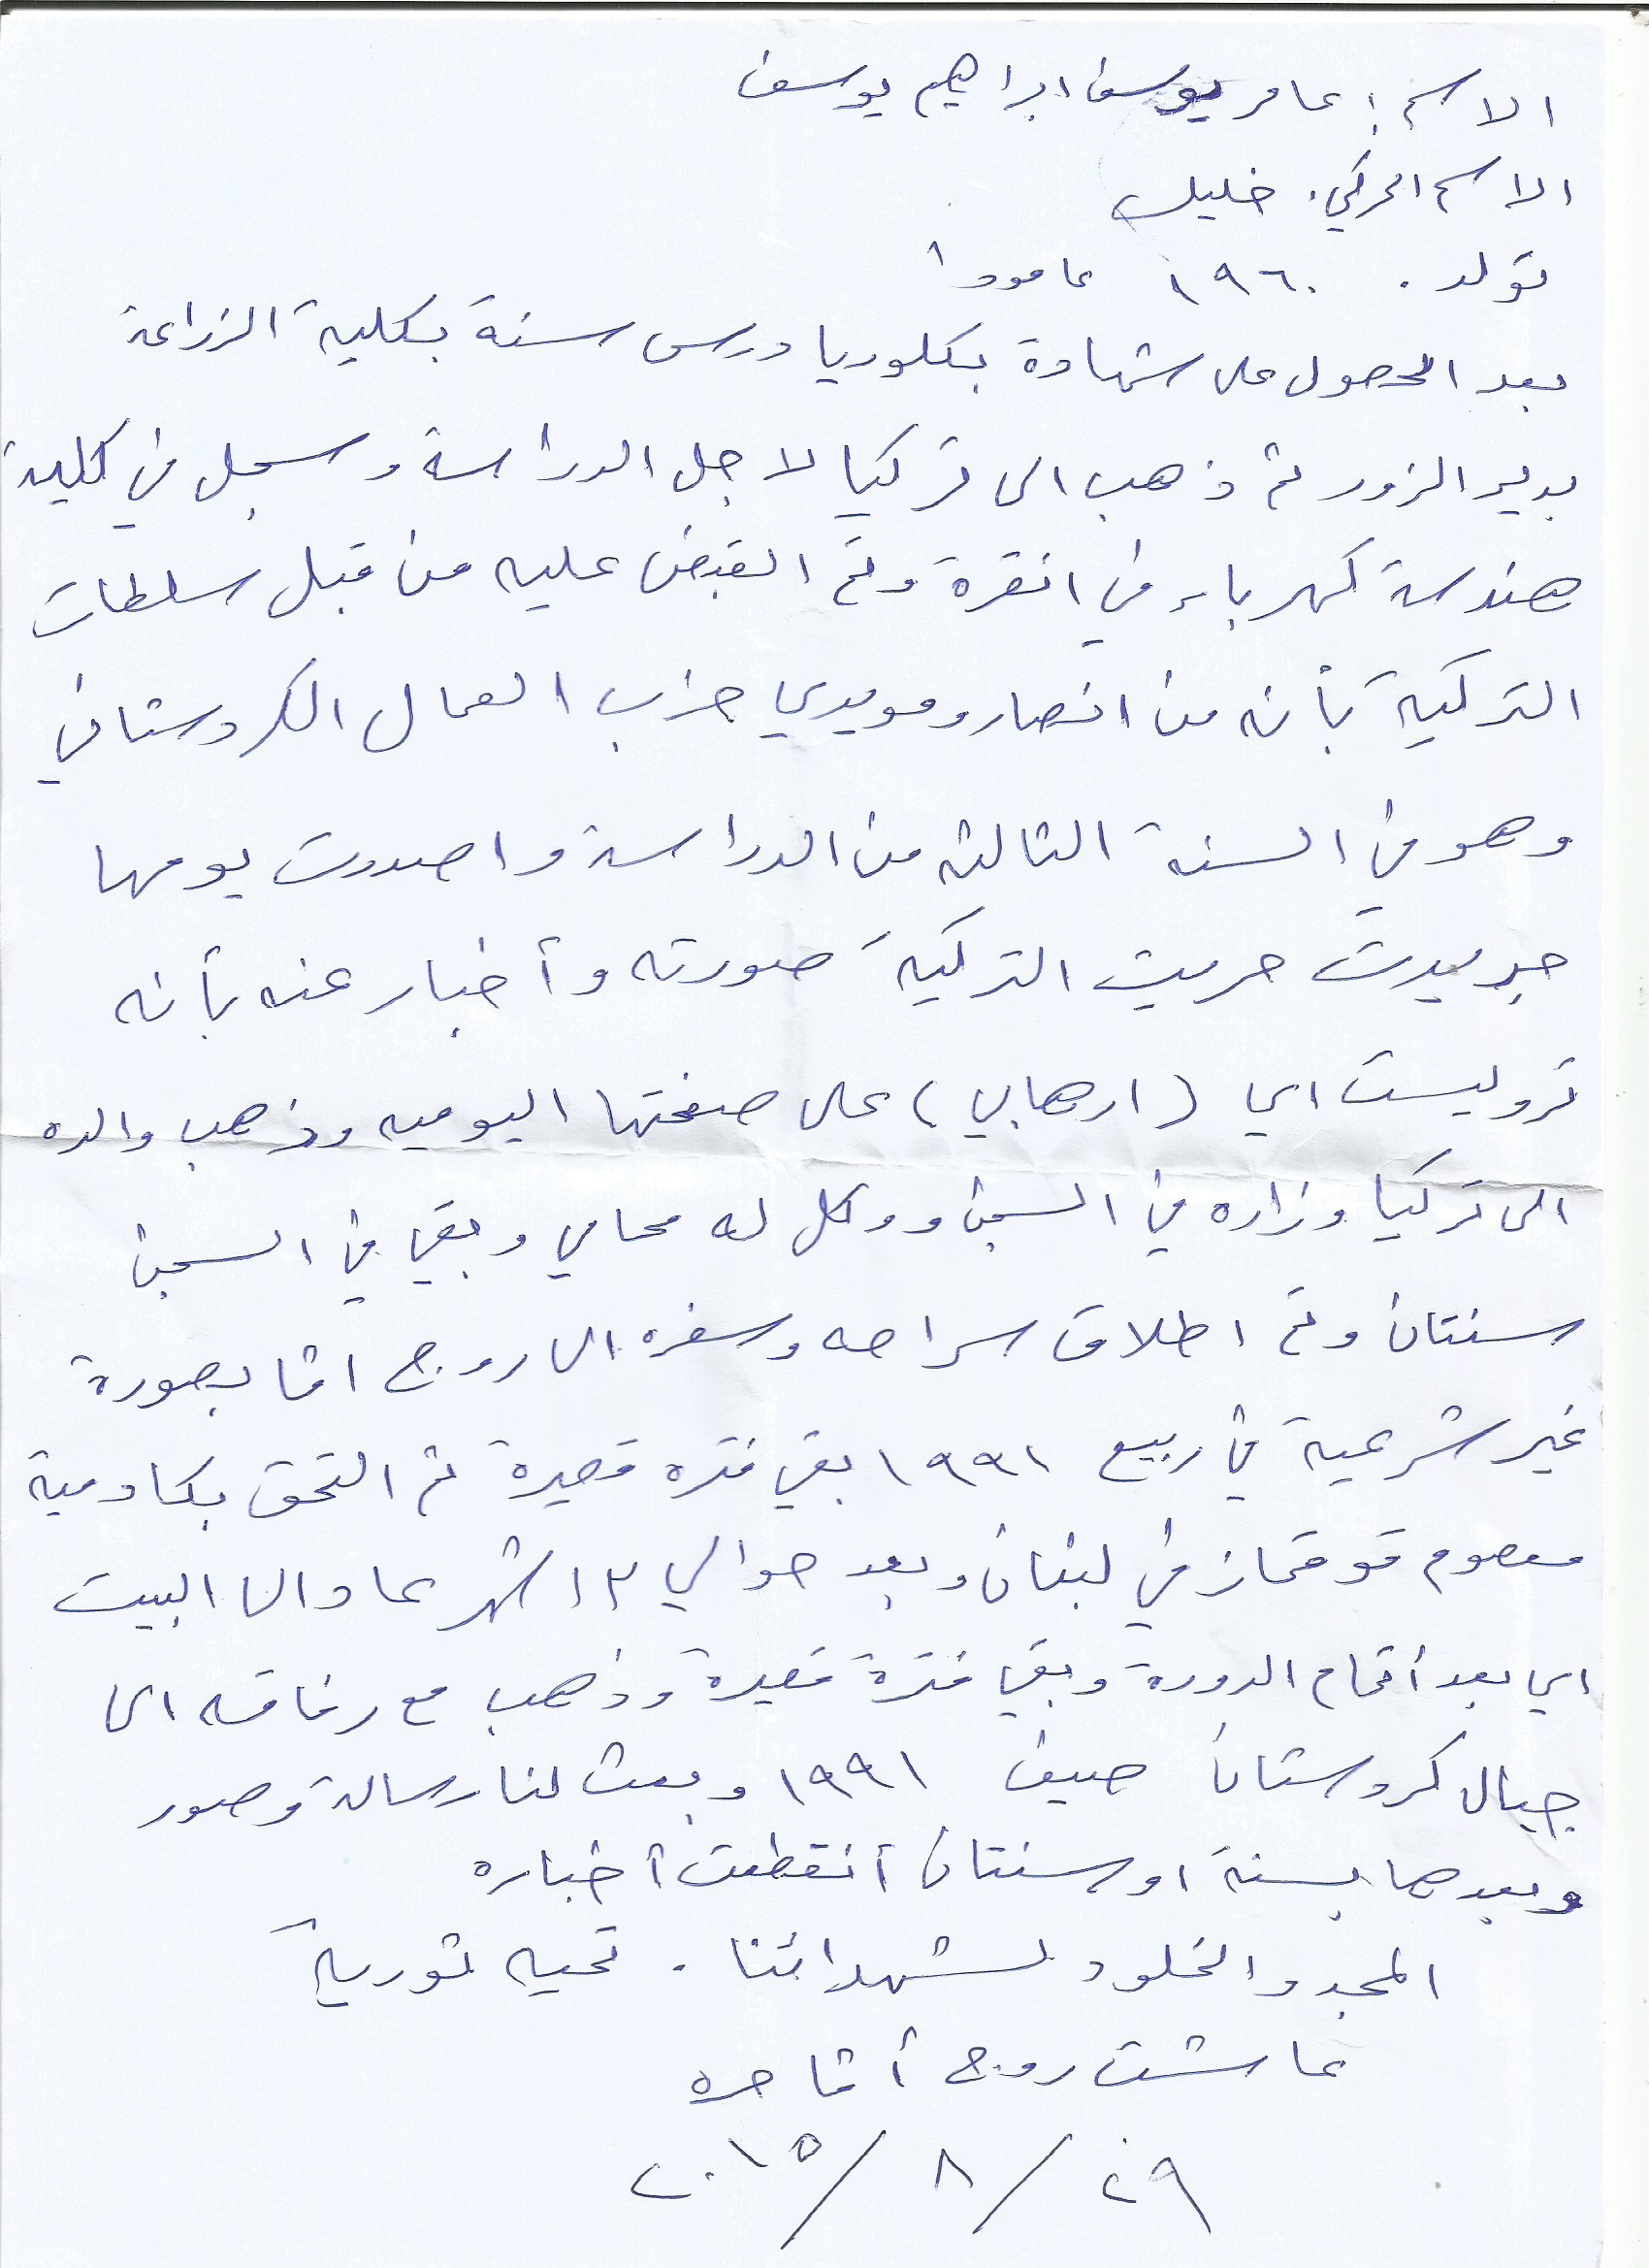 الاسم : عامر يوسف ابراهيم يوسف
الاسم الحركي . خليل
تولد . ١٩٦٠ عامودا
بعد الحصول على شهادة بكلوريا درس سنة بكلية الزراعة
بدير الزور ثم ذهب الى تركيا لاجل الدراسة وسجل في كلية
هندسة كهرباء في انقرة وتم القبض عليه من قبل سلطات
التركية بأنه من انصار ومويدي حزب العمال الكردستاني
وهو في السنة الثالثه من الدراسة واصدرت يومها
جريدت حريت التركية صورته وأخبار عنه بأنه
تروليست اي (ارهابي) على صفحتها اليوميه وذهب والده
الى تركيا وزاره في السجن ووكل له محامي وبقي في السجن
سنتان وتم اطلاق سراحه وسفره الى روج افا بصورة
غير شرعية في ربيع ١٩٩١ بقي فتره قصيرة ثم التحق بكادمية
معصوم قوقماز في لبنان وبعد حوالي ٣ اشهر عاد الى البيت
اي بعد أتمام الدورة وبقي فترة قصيرة وذهب مع رفاقه الى
جبال كردستان صيف ١٩٩١ وبعث لنا رسالة وصور
وبعدها بسنة او سنتان أنقطعت أخباره
المجد والخلود لشهدائنا . تحيه ثورية
عاشت روج أفا حره
٢٩ / ٨ / ٢٠١٥